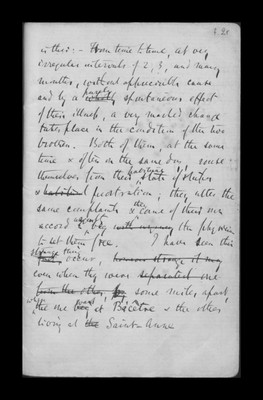 in this: — From time to time, at very
irregular intervals of 2, 3, and many
months, without appreciable cause
and by a purely spontaneous effect
of their illness, a very marked change
takes place in the condition of the two
brothers. Both of them, at the same
time & often on the same day, rouse
themselves from their state of stupor
& habitual prostration; they utter the
same complaints & they come of their own
accord to beg the physician
to let them free. I have seen this
strange thing occur,
even when they were separated one
from the other, by some miles apart,
the one was at Bicêtre & the other
living at the Sainte-Anne